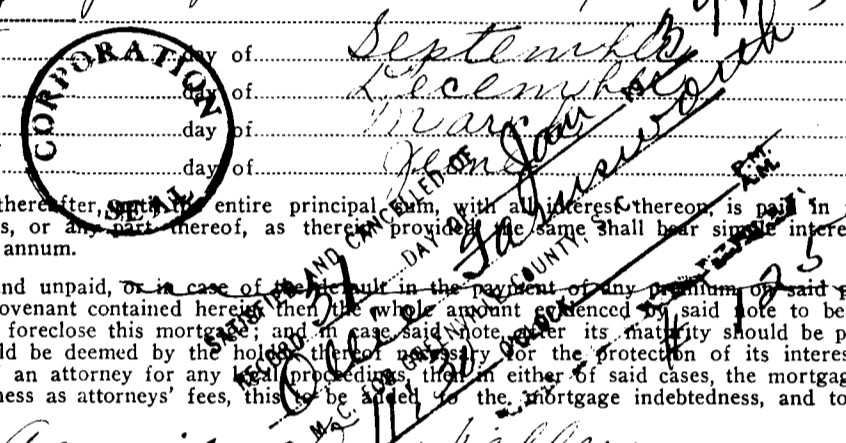 CORPORATION
SEAL
day of September
day of December
day of March
day of June
thereafter, until the entire principal sum, with all interest thereon, is paid in
s, or any part thereof, as therein provided, the same shall bear simple interes
annum.
nd unpaid, or in case of the default in the payment of any premium on said p
ovenant contained herein, then the whole amount evidenced by said note to be
foreclose this mortgage; and in case said note, after its maturity should be p
ld be deemed by the holder thereof necessary for the protection of its interes
f an attorney for any legal proceedings, then in either of said cases, the mortgag
ness as attorneys' fees, this to be added to the mortgage indebtedness, and to
SATISFIED AND CANCELLED OF
RECORD 31 DAY OF Jan
Ollie Farnsworth
M. C. FOR GREENVILLE COUNTY, S. C.
11:30 O'CLOCK
A.M.
P.M.